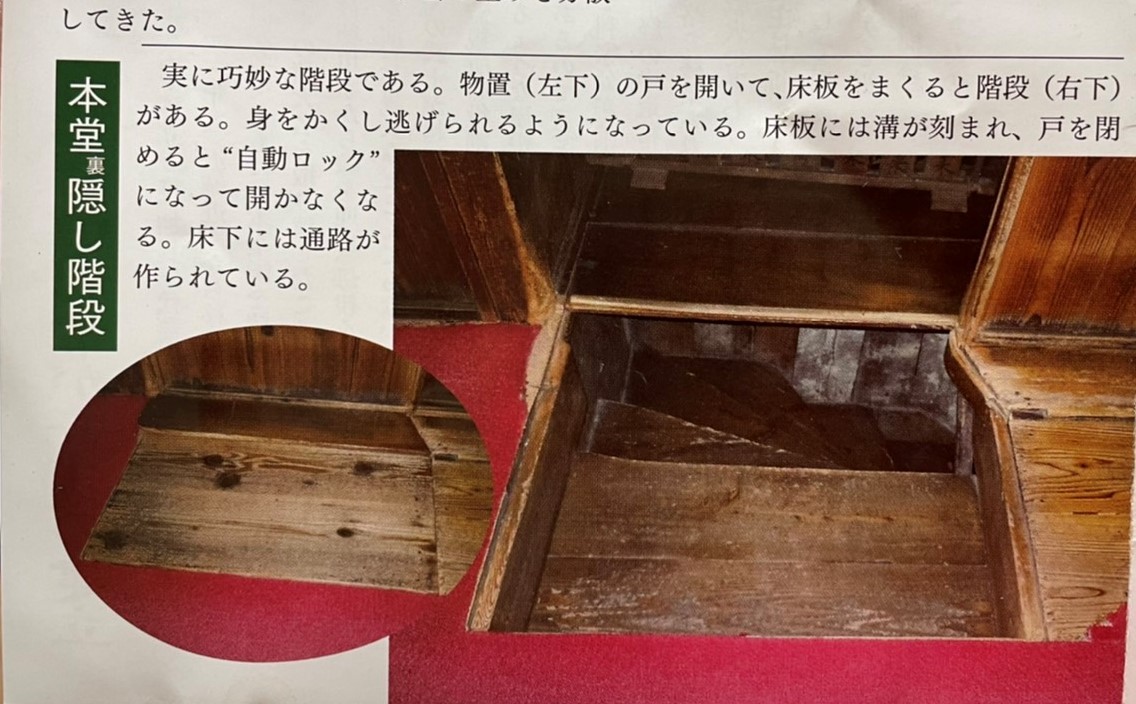 してきた。
本堂裏隠し階段
実に巧妙な階段である。物置（左下）の戸を開いて、床板をまくると階段（右下）
がある。身をかくし逃げられるようになっている。床板には溝が刻まれ、戸を閉
めると“自動ロック”
になって開かなくな
る。床下には通路が
作られている。